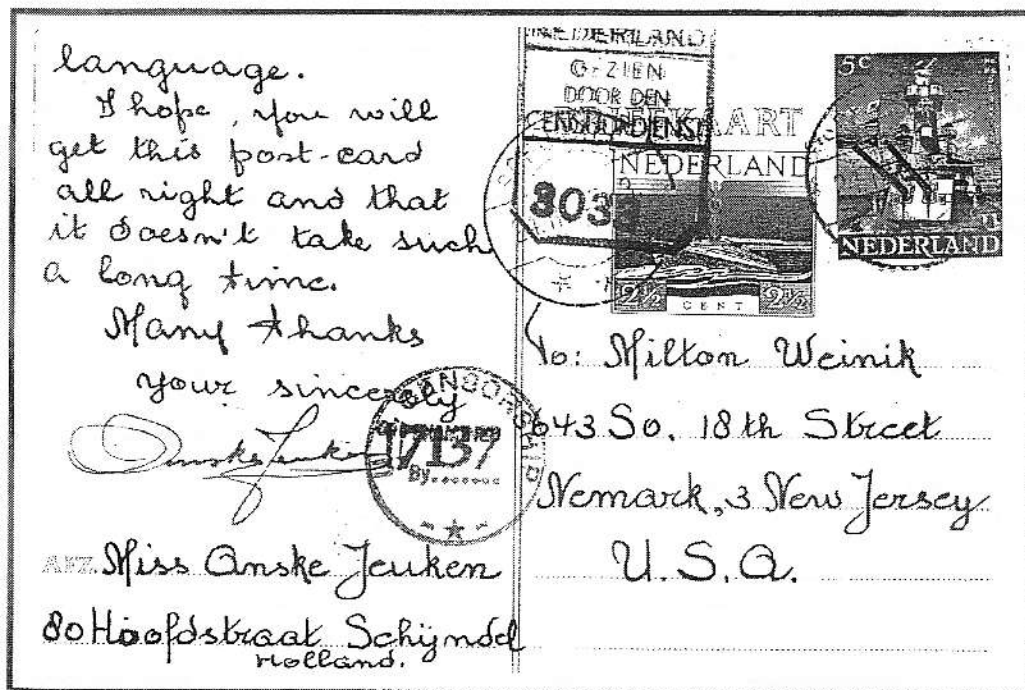 language.
I hope, you will
get this post-card
all right and that
it doesn't take such
a long time.
Many thanks
your sincerely
Anske Jeuken
AFZ. Miss Anske Jeuken
80 Hoofdstraat Schijndel
Holland.
NEDERLAND
GEZIEN
DOOR DEN
CENSUURDIENST
3033
KAART
NEDERLAND
2½ CENT 2½
5c
NEDERLAND
CENSORSHIP
7137
By.......
To: Milton Weinik
643 So. 18th Street
Newark, 3 New Jersey
U.S.A.